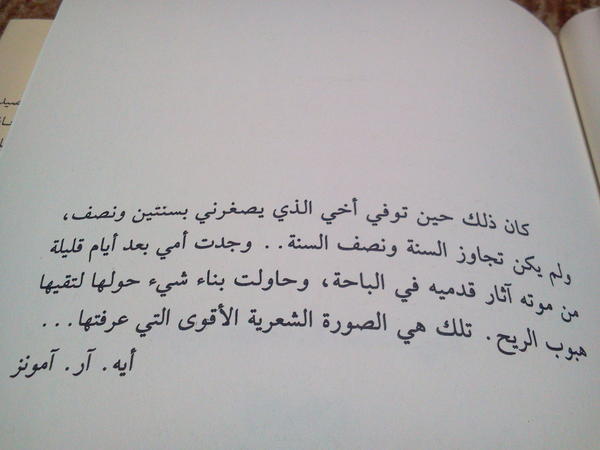 كان ذلك حين توفي أخي الذي يصغرني بسنتين ونصف،
ولم يكن تجاوز السنة ونصف السنة.. وجدت أمي بعد أيام قليلة
من موته آثار قدميه في الباحة، وحاولت بناء شيء حولها لتقيها
هبوب الريح. تلك هي الصورة الشعرية الأقوى التي عرفتها...
أيه. آر. آمونز